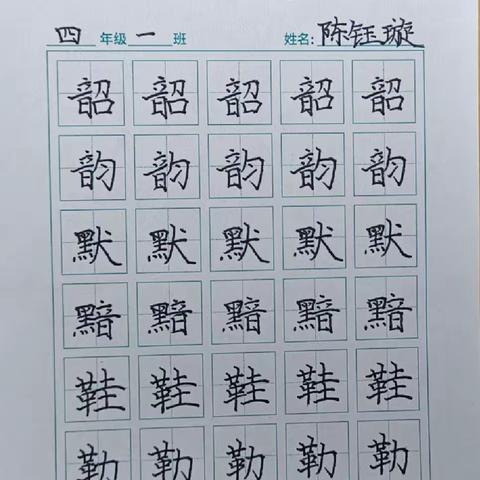 四年级一班 姓名:陈钰璇
韶韶韶韶韶
韵韵韵韵韵
默默默默默
黯黯黯黯黯
鞋鞋鞋鞋鞋
勒勒勒勒勒